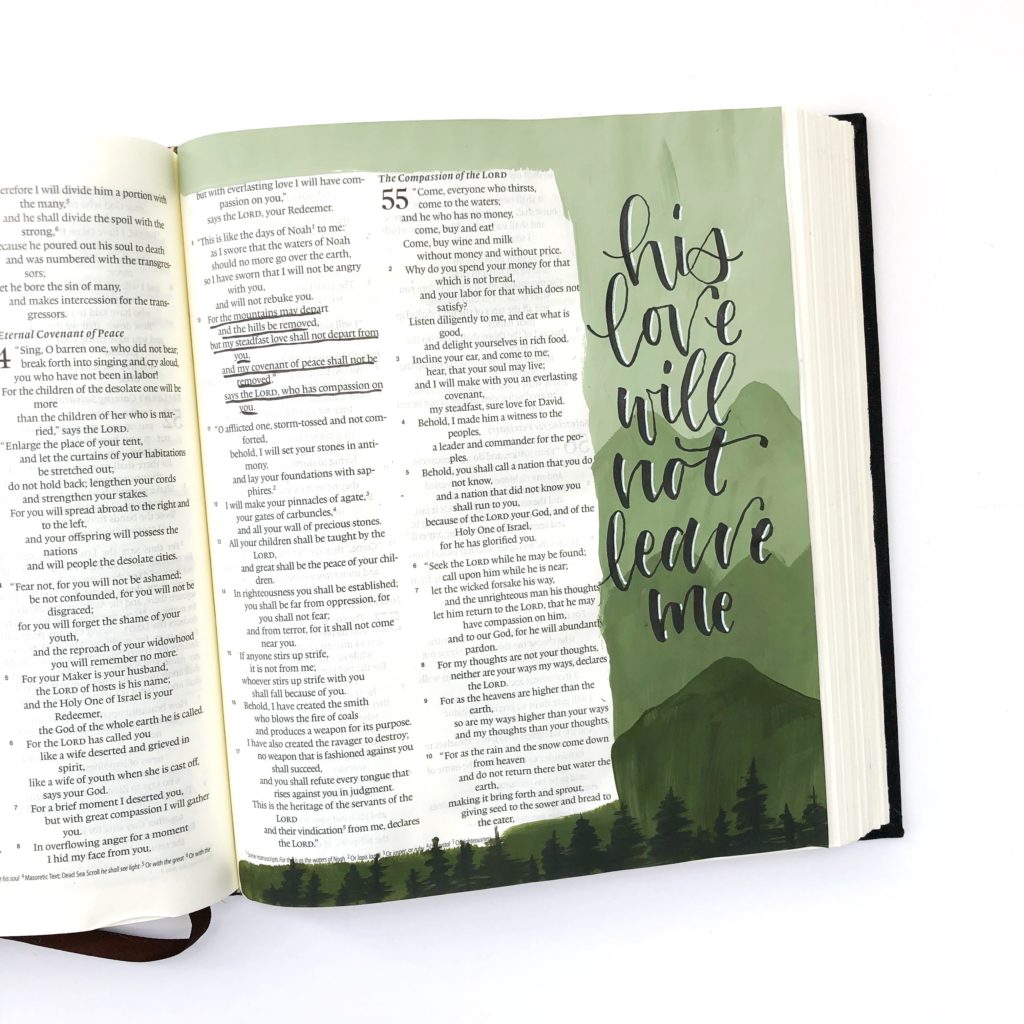 erefore I will divide him a portion with
the many,⁵
and he shall divide the spoil with the
strong,⁶
ecause he poured out his soul to death
and was numbered with the transgres-
sors;
et he bore the sin of many,
and makes intercession for the trans-
gressors.
Eternal Covenant of Peace
4 "Sing, O barren one, who did not bear;
break forth into singing and cry aloud,
you who have not been in labor!
For the children of the desolate one will be
more
than the children of her who is mar-
ried," says the LORD.
"Enlarge the place of your tent,
and let the curtains of your habitations
be stretched out;
do not hold back; lengthen your cords
and strengthen your stakes.
For you will spread abroad to the right and
to the left,
and your offspring will possess the
nations
and will people the desolate cities.
"Fear not, for you will not be ashamed;
be not confounded, for you will not be
disgraced;
for you will forget the shame of your
youth,
and the reproach of your widowhood
you will remember no more.
5 For your Maker is your husband,
the LORD of hosts is his name;
and the Holy One of Israel is your
Redeemer,
the God of the whole earth he is called.
6 For the LORD has called you
like a wife deserted and grieved in
spirit,
like a wife of youth when she is cast off,
says your God.
7 For a brief moment I deserted you,
but with great compassion I will gather
you.
8 In overflowing anger for a moment
I hid my face from you,
his soul ⁴ Masoretic Text; Dead Sea Scroll he shall see light ⁵ Or with the great ⁶ Or with the
but with everlasting love I will have com-
passion on you,"
says the LORD, your Redeemer.
9 "This is like the days of Noah¹ to me:
as I swore that the waters of Noah
should no more go over the earth,
so I have sworn that I will not be angry
with you,
and will not rebuke you.
10 For the mountains may depart
and the hills be removed,
but my steadfast love shall not depart from
you,
and my covenant of peace shall not be
removed,"
says the LORD, who has compassion on
you.
11 "O afflicted one, storm-tossed and not com-
forted,
behold, I will set your stones in anti-
mony,
and lay your foundations with sap-
phires.²
12 I will make your pinnacles of agate,³
your gates of carbuncles,⁴
and all your wall of precious stones.
13 All your children shall be taught by the
LORD,
and great shall be the peace of your chil-
dren.
14 In righteousness you shall be established;
you shall be far from oppression, for
you shall not fear;
and from terror, for it shall not come
near you.
15 If anyone stirs up strife,
it is not from me;
whoever stirs up strife with you
shall fall because of you.
16 Behold, I have created the smith
who blows the fire of coals
and produces a weapon for its purpose.
I have also created the ravager to destroy;
17 no weapon that is fashioned against you
shall succeed,
and you shall refute every tongue that
rises against you in judgment.
This is the heritage of the servants of the
LORD
and their vindication⁵ from me, declares
the LORD."
¹ Some manuscripts For this is as the waters of Noah ² Or lapis lazuli
The Compassion of the LORD
55 "Come, everyone who thirsts,
come to the waters;
and he who has no money,
come, buy and eat!
Come, buy wine and milk
without money and without price.
2 Why do you spend your money for that
which is not bread,
and your labor for that which does not
satisfy?
Listen diligently to me, and eat what is
good,
and delight yourselves in rich food.
3 Incline your ear, and come to me;
hear, that your soul may live;
and I will make with you an everlasting
covenant,
my steadfast, sure love for David.
4 Behold, I made him a witness to the
peoples,
a leader and commander for the peo-
ples.
5 Behold, you shall call a nation that you do
not know,
and a nation that did not know you
shall run to you,
because of the LORD your God, and of the
Holy One of Israel,
for he has glorified you.
6 "Seek the LORD while he may be found;
call upon him while he is near;
7 let the wicked forsake his way,
and the unrighteous man his thoughts;
let him return to the LORD, that he may
have compassion on him,
and to our God, for he will abundantly
pardon.
8 For my thoughts are not your thoughts,
neither are your ways my ways, declares
the LORD.
9 For as the heavens are higher than the
earth,
so are my ways higher than your ways
and my thoughts than your thoughts.
10 "For as the rain and the snow come down
from heaven
and do not return there but water the
earth,
making it bring forth and sprout,
giving seed to the sower and bread to
the eater,
his
love
will
not
leave
me